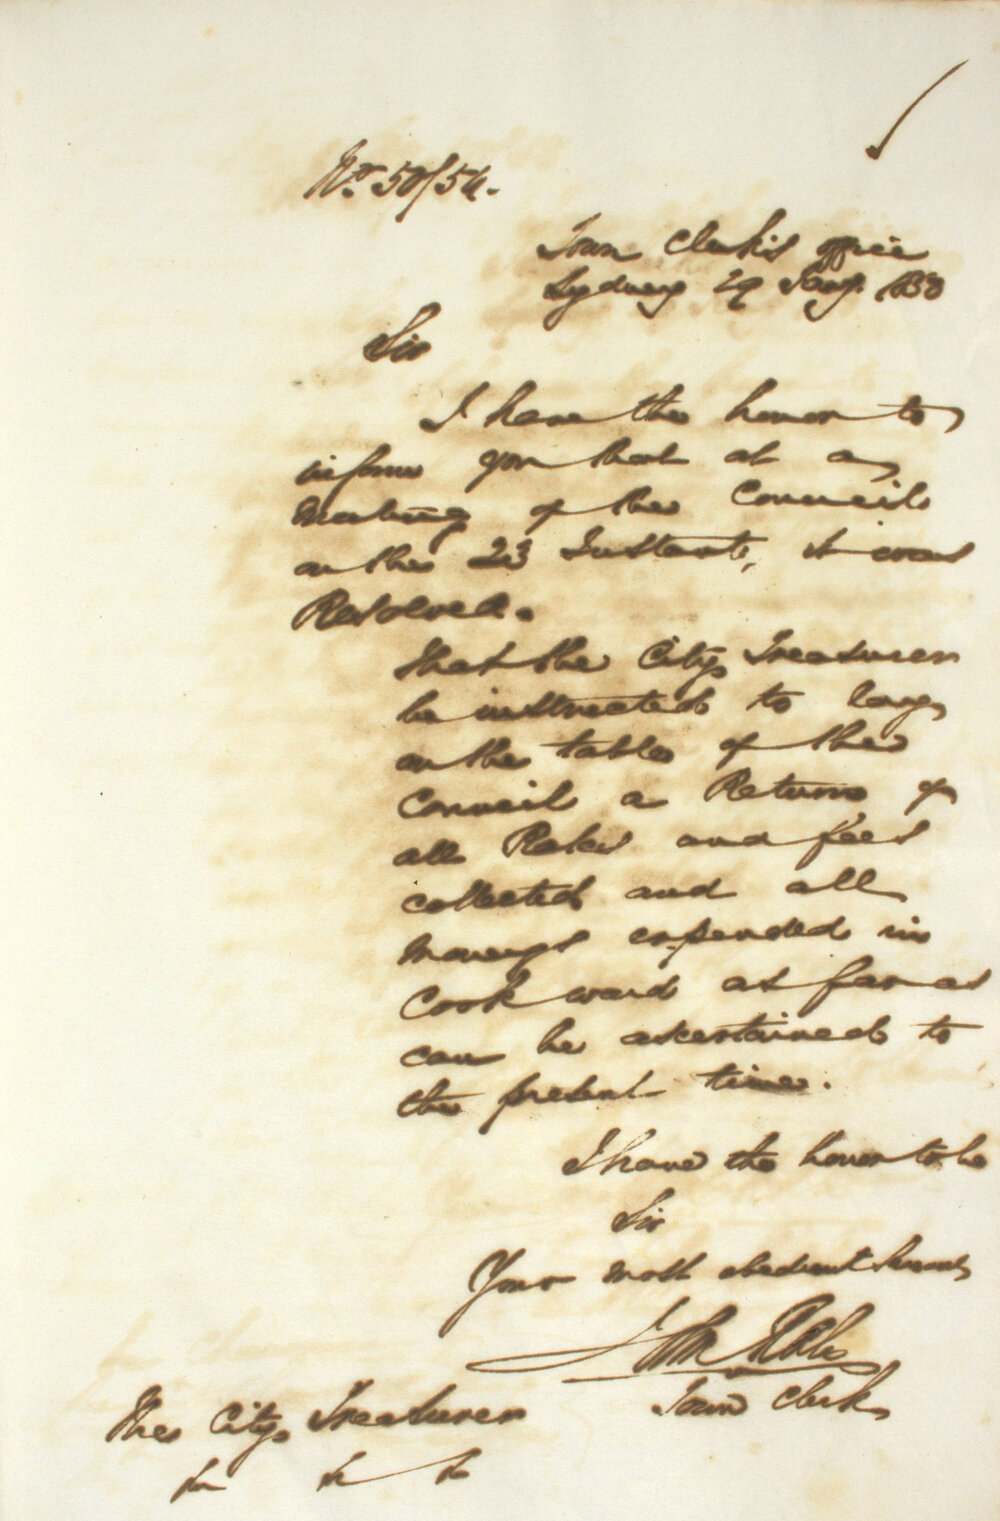 No. 50/54.
Town Clerk's office
Sydney 29 1850
Sir
I have the honor to
inform you that at a
Meeting of the Council
on the 23 Instant, it was
Resolved.
That the City Treasurer
be instructed to lay
on the table of the
Council a Return of
all Rates and fees
collected and all
moneys expended in
Cook ward as far as
can be ascertained to
the present time.
I have the honor to be
Sir
Your most obedient Servant
Town Clerk
The City Treasurer